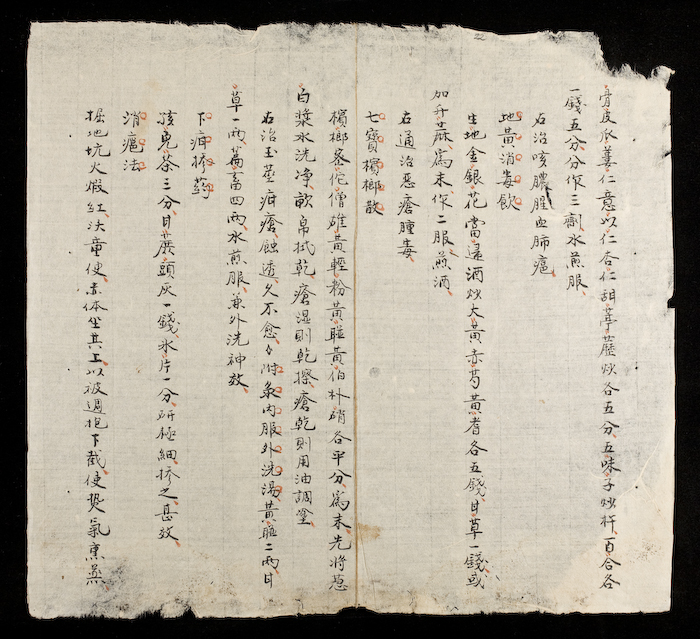 骨皮瓜蔞仁意以仁杏仁甜葶藶炒各五分五味子炒杵百合各
一錢五分分作三劑水煎服
右治咳膿腥血肺癰
地黃消毒飲
生地金銀花當歸酒炒大黃赤芍黃耆各五錢甘草一錢或
加升蔴為末作二服煎酒
右通治惡瘡腫毒
七寶檳榔散
檳榔密佗僧雄黃輕粉黃連黃伯朴硝各平分為末先將葱
白漿水洗净軟帛拭乾瘡湿則乾擦瘡乾則用油調塗
右治玉莖疳瘡蝕透久不愈々附彔内服外洗湯黃連二兩甘
草一兩萹畜四兩水煎服兼外洗神效
下疳摻葯
孩兒茶三分甘蔗頭灰一錢氷片一分研極細摻之甚效
消癰法
掘地坑火煆紅沃童便赤体坐其上以被週抱下截使熱氣熏蒸